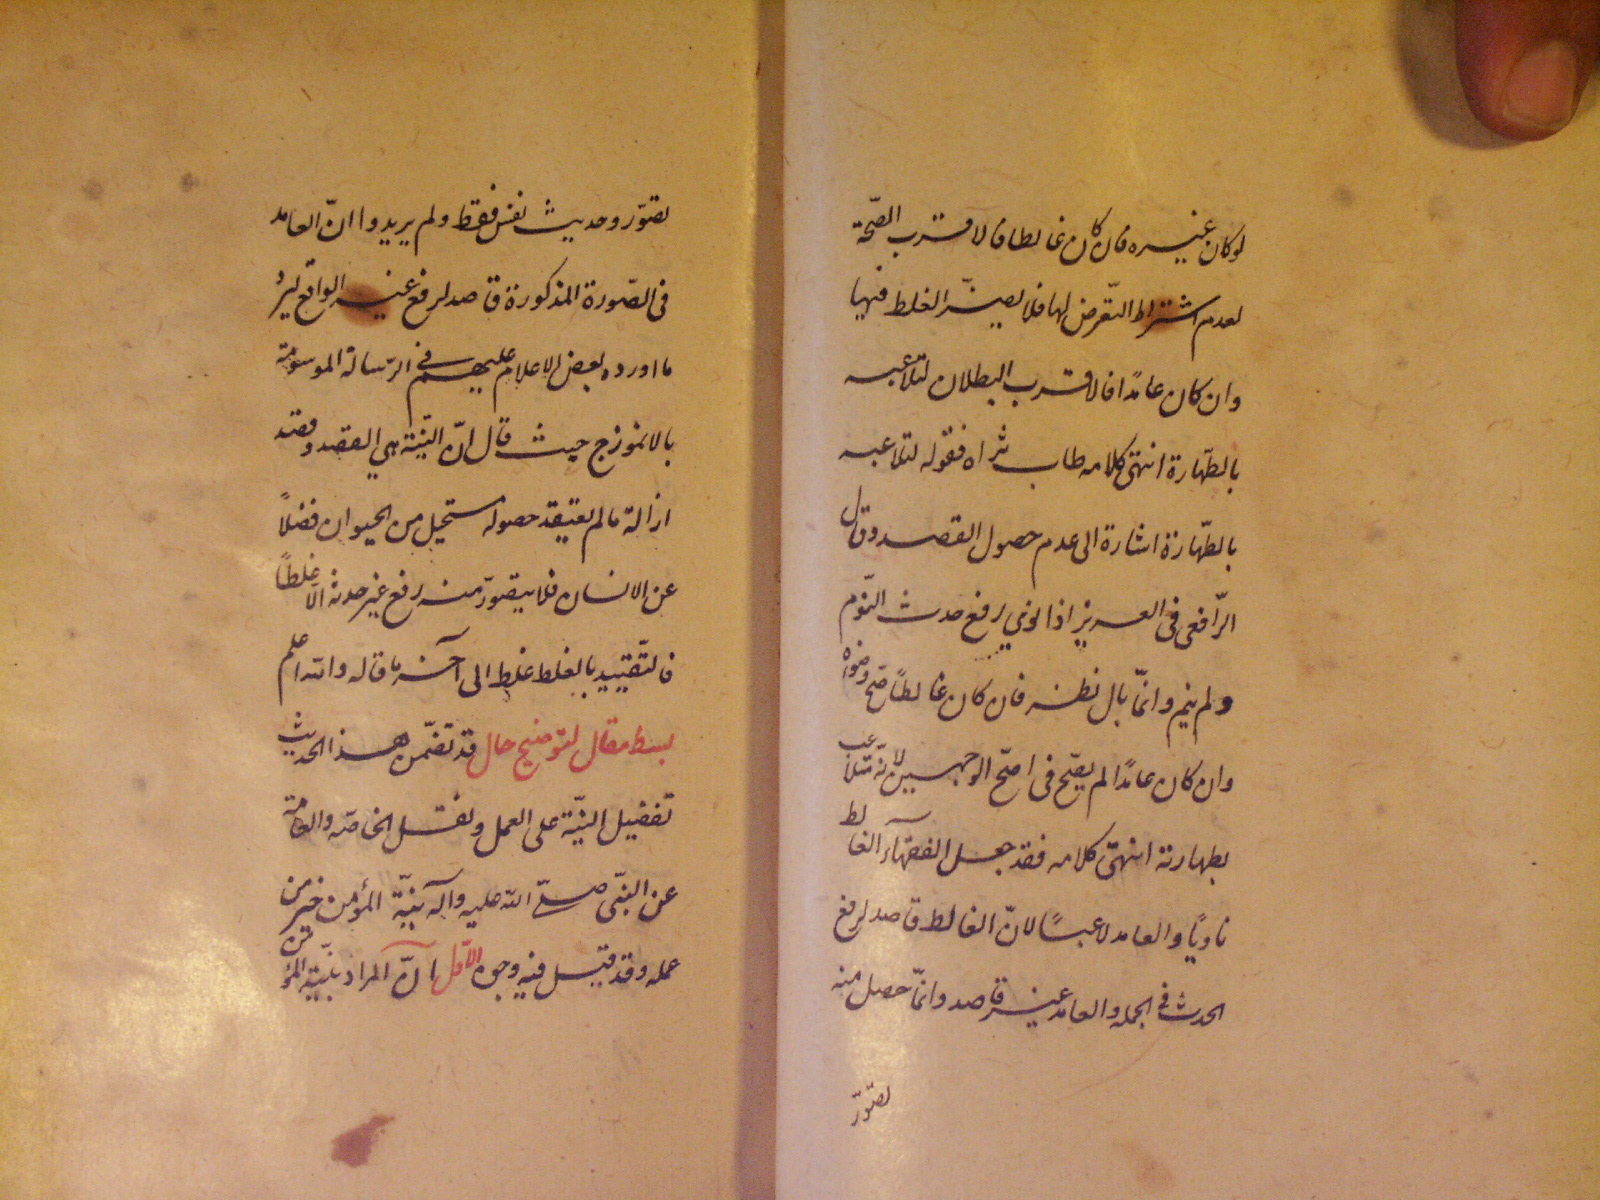 لو كان غيره فان كان غالطا فالاقرب الصّحّة
لعدم اشتراط التّعرض لها فلا يضرّ الغلط فيها
وان كان عامدًا فالاقرب البطلان لتلاعبه
بالطّهارة انتهى كلامه طاب ثراه فقوله لتلاعبه
بالطّهارة اشارة الى عدم حصول القصد وقال
الرّافعى فى العزيز اذا نوى رفع حدث النّوم
ولم ينم وانّما بال نظر فان كان غالطًا صحّ وضوؤه
وان كان عامدًا لم يصحّ فى اصحّ الوجهين لانّه متلاعب
بطهارته انتهى كلامه فقد جعل الفقهاء الغالط
ناويًا والعامد لاعبًا لانّ الغالط قاصد لرفع
الحدث فى الجملة والعامد غير قاصد وانّما حصل منه
تصوّر
تصوّر وحديث نفس فقط ولم يريدوا انّ العامد
فى الصّورة المذكورة قاصد لرفع غير الواقع ليرد
ما اورده بعض الاعلام عليهم فى الرّسالة الموسومة
بالانموزج حيث قال انّ النيّة هي القصد وقصد
ازالة ما لم يعتقد حصوله مستحيل من الحيوان فضلاً
عن الانسان فلا يتصوّر منه رفع غير حدثه الّا غلطًا
فالتّقييد بالغلط غلط الى آخر ما قاله والله اعلم
بسط مقال لتوضيح حال قد تضمّن هذا الحديث
تفضيل النيّة على العمل ونقل الخاصّة والعامّة
عن النبّى صلّى الله عليه وآله نيّة المؤمن خير من
عمله وقد قيل فيه وجوه الاوّل انّ المراد بنيّة المؤمن